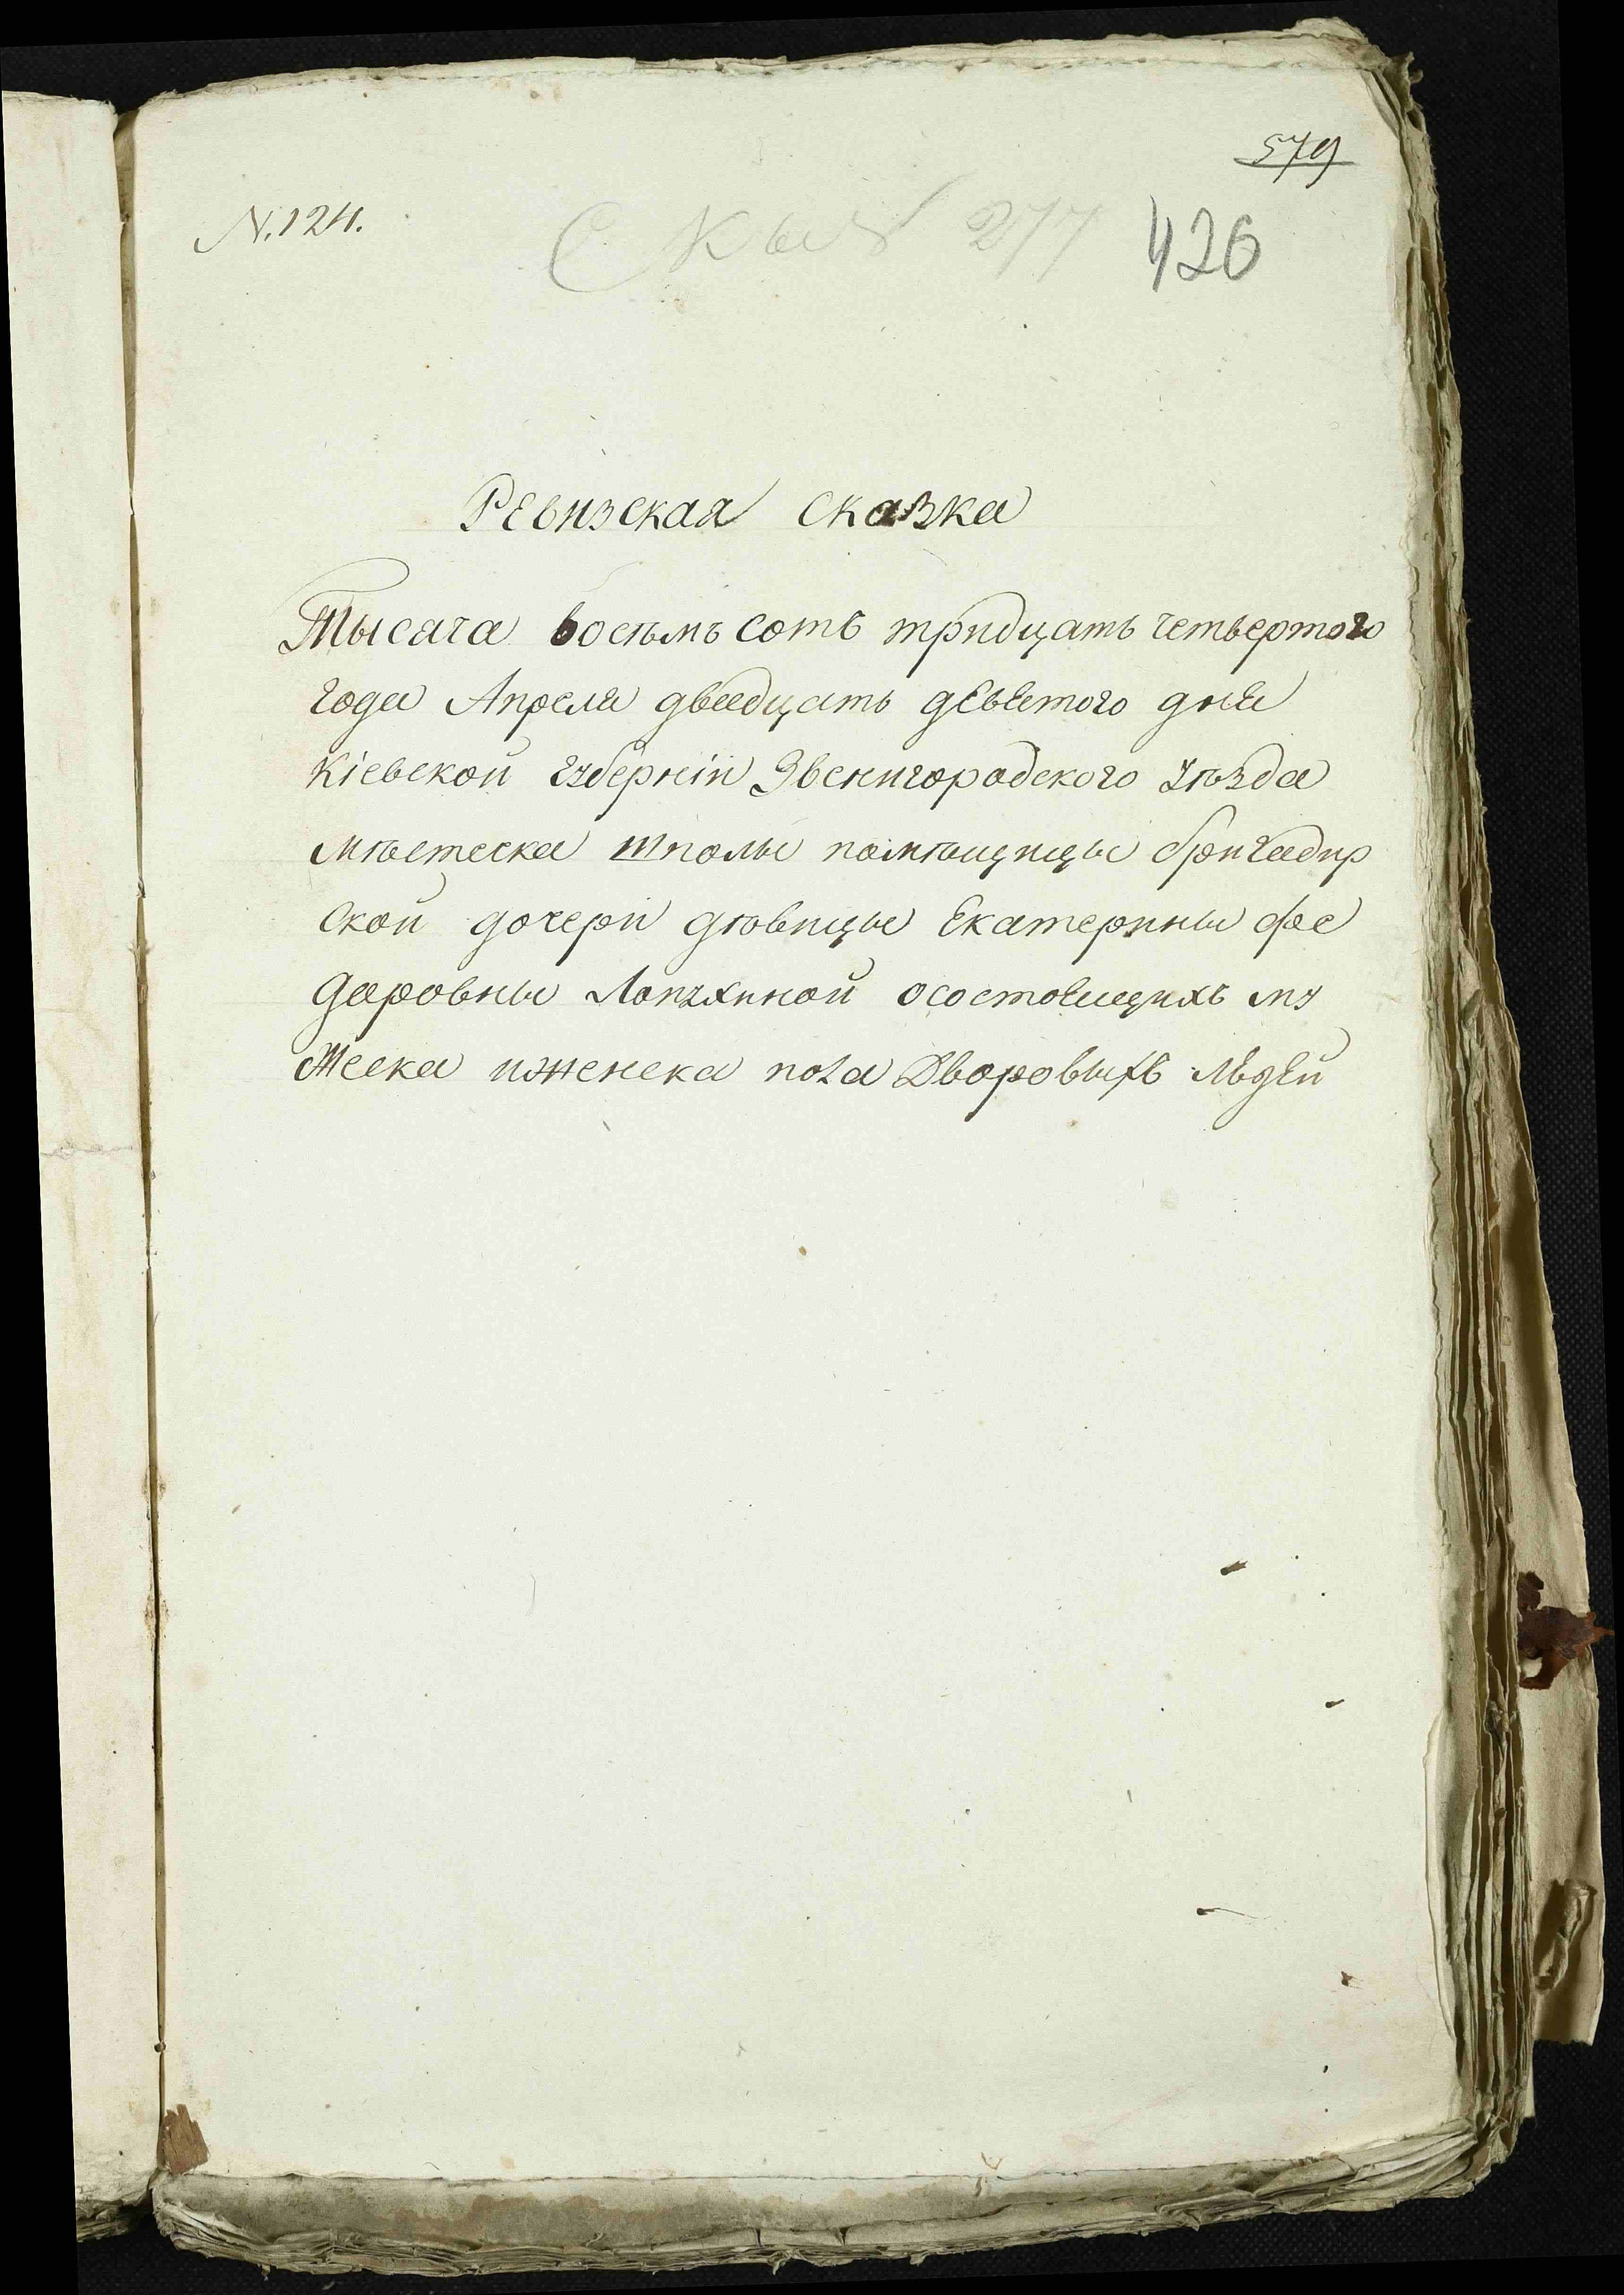 579
N. 124.
426
Ревизская сказка
Тысяча восѣмь сотъ тридцать четвертого
года Апреля двадцать девятого дня
Кіевской губерніи Звенигородского уѣзда
мѣстеска Шполы помѣщицы бригадир
ской дочери дѣвицы Екатерины Фе
даровны Лопухиной осостоящихъ му
жеска иженска пола Дворовыхъ людей